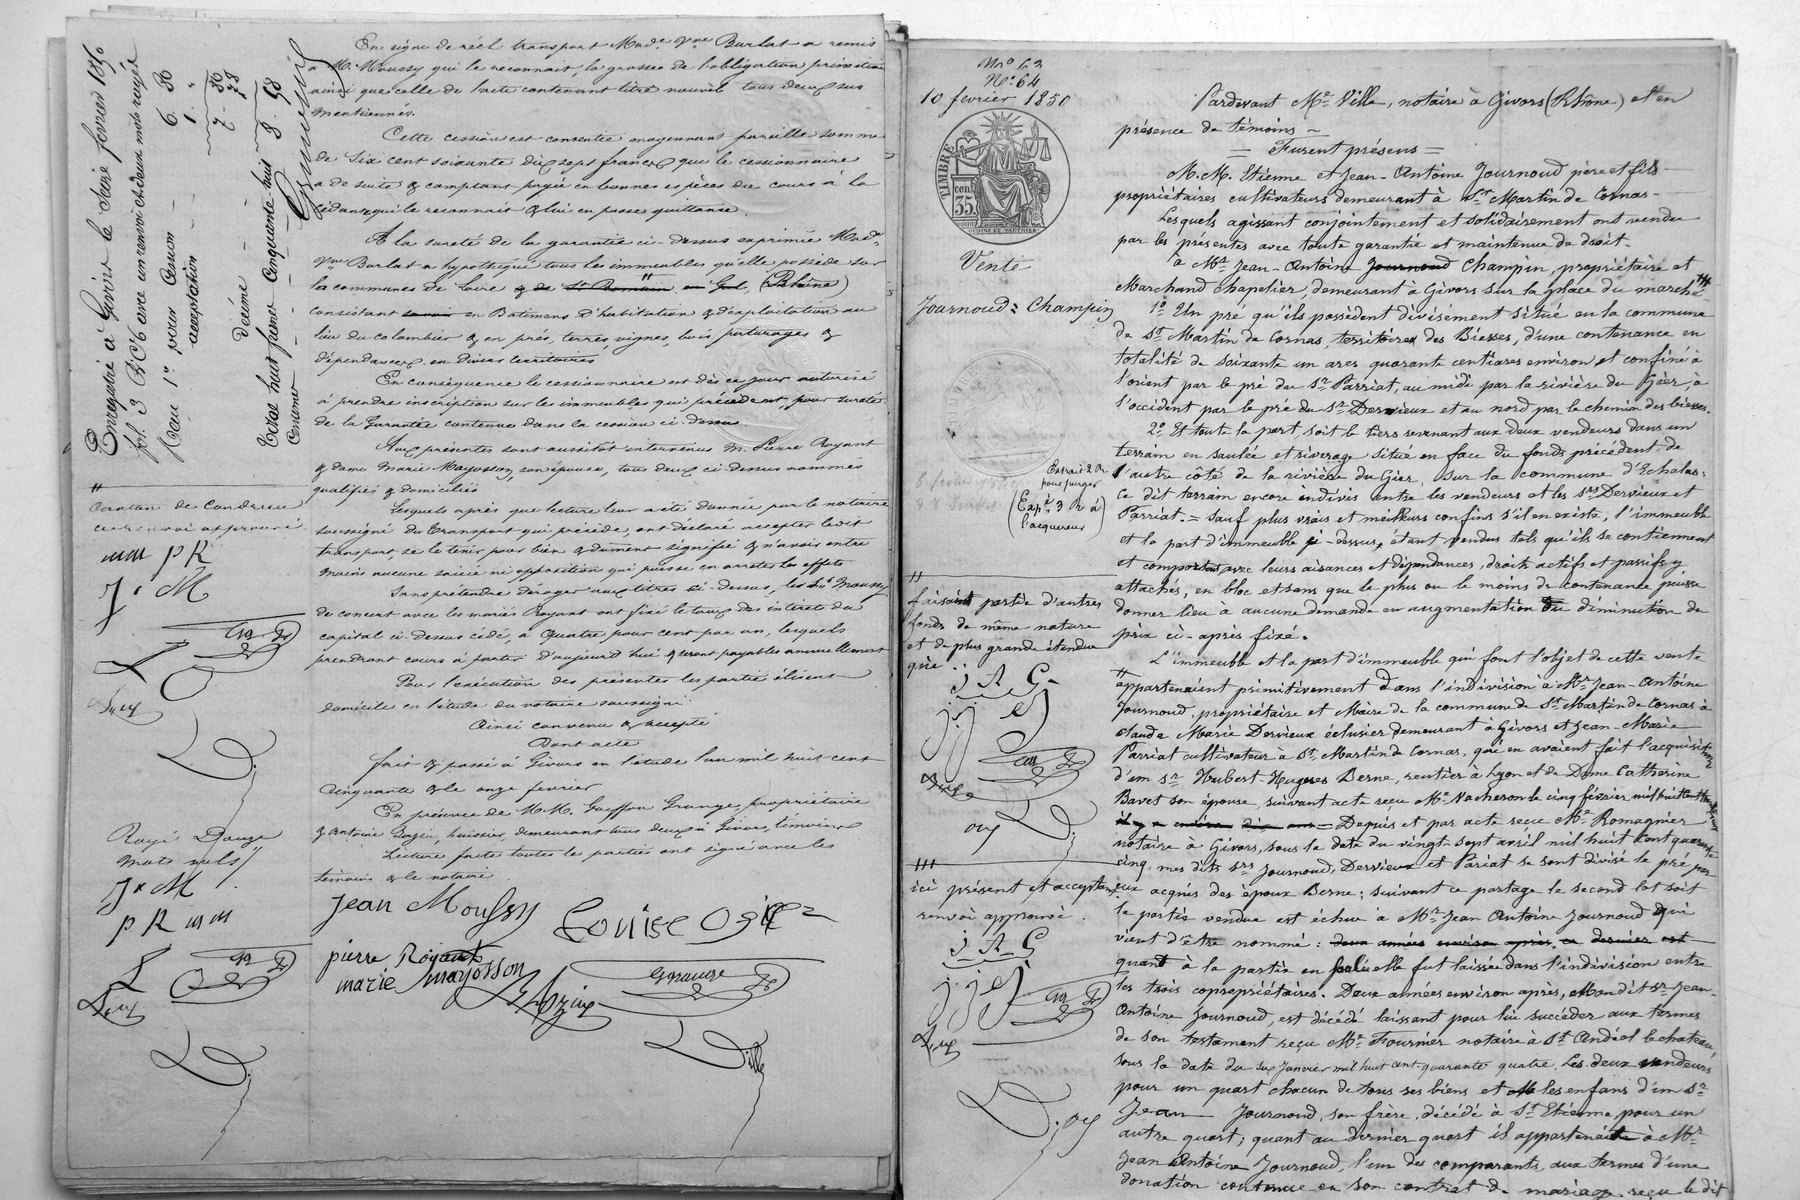 En signe de réel transport Made Vve Burlat a remis
à M. Moussy qui le reconnait, la grosse de l'obligation primitive
ainsi que celle de l'acte contenant titre nouvel tous deux sus
mentionnés.
Cette cession est consentie moyennant pareille somme
de Six cent soixante dix sept francs que le cessionnaire
a de suite & comptant payée en bonnes espèces du cours à la
cédante qui le reconnait & lui en passe quittance.
A la sureté de la garantie ci-dessus exprimée Made
Vve Burlat a hypothéqué tous les immeubles qu'elle possède sur
la commune de Loire & de St Romain en Gal, (Rhône)
consistant en Batimens d'habitation & d'exploitation au
lieu du colombier & en prés, terres, vignes, bois paturages &
dépendances en divers territoires
En conséquence le cessionnaire est dès ce jour autorisé
à prendre inscription sur les immeubles qui précèdent, pour sureté
de la Garantie contenue dans la cession ci-dessus.
Aux présentes sont aussitôt intervenus M. Pierre Royant
& dame Marie Mayosson, son épouse, tous deux ci-dessus nommés
qualifiés & domiciliés
Lesquels après que lecture leur a été donnée par le notaire
soussigné du transport qui précède, ont déclaré accepter ledit
transport se le tenir pour bien & dument signifié & n'avoir entre
mains aucune saisie ni opposition qui puisse en arrêter les effets
Sans prétendre déroger aux titres ci-dessus, les dit Moussy
de concert avec les mariés Royant ont fixé le taux des intérêts du
capital ci-dessus cédé, à quatre pour cent par an, lesquels
prendront cours à partir d'aujourd'hui & seront payables annuellement
Pour l'exécution des présentes les parties élisent
domicile en l'étude du notaire soussigné.
Ainsi convenu & accepté
Dont acte
fait & passé à Givors en l'étude l'an mil huit cent
cinquante & le onze février
En présence de M.M. Goiffon Grange, propriétaire
& Antoine Bozin, huissier, demeurant tous deux à Givors, témoins
Lecture faite toutes les parties ont signé avec les
témoins & le notaire
Jean Moussy
Louise
pierre Royant
marie mayosson
Grange
Ville
Enregistré à Givors le février 1850
fol. 3 Rc
Reçu 1° pour Cession 6. 80
acceptation 1. "
7. 80
décime 78
Total huit francs cinquante huit centimes 8. 58
Canton de Condrieu
ce renvoi approuvé
mm p R
J. M
Rayé Douze
mots nuls
J. M
p R mm
N° 63
N° 64
10 fevrier 1850
TIMBRE
35 cen.
Vente
Journoud = Champin
Extrait 2 R.
pour purger
Exp. 3 R à
l'acquereur
faisant partie d'autres
fonds de même nature
et de plus grande étendue
qui
J A G
ici présent et acceptant
renvoi approuvé.
J A G
Pardevant Me Ville, notaire à Givors (Rhône) et en
présence de témoins
= Furent présens =
M.M. Etienne et Jean-Antoine Journoud père et fils
propriétaires cultivateurs demeurant à St Martin de Cornas -
Lesquels agissant conjointement et solidairement ont vendu
par les présentes avec toute garantie et maintenue de droit -
à Mr Jean-Antoine Journoud Champin, propriétaire et
Marchand chapelier, demeurant à Givors sur la place du marché
1° Un pré qu'ils possèdent divisement situé en la commune
de St Martin de Cornas, territoire des Biesses, d'une contenance en
totalité de soixante un ares quarante centiares environ et confiné à
l'orient par le pré du Sr Parriat, au midi par la rivière du Gier, à
l'occident par le pré du Sr Dervieux et au nord par le chemin des biesses.
2° Et toute la part, soit le tiers revenant aux deux vendeurs dans un
terrain en saulée et riverage situé en face du fonds précédent, de
l'autre côté de la rivière du Gier, sur la commune d'Echalas:
ce dit terrain encore indivis entre les vendeurs et les Srs Dervieux et
Parriat. = Sauf plus vrais et meilleurs confins s'il en existe, l'immeuble
et la part d'immeuble ci-dessus, étant vendus tels qu'ils se contiennent
et comportent, avec leurs aisances et dépendances, droits actifs et passifs y
attachés, en bloc et sans que le plus ou le moins de contenance puisse
donner lieu à aucune demande en augmentation ou diminution du
prix ci-après fixé.
L'immeuble et la part d'immeuble qui font l'objet de cette vente
appartenaient primitivement dans l'indivision à Mr Jean-Antoine
Journoud, propriétaire et Maire de la commune de St Martin de Cornas à
Claude Marie Dervieux éclusier demeurant à Givors et Jean Marie
Parriat cultivateur à St Martin de Cornas, qui en avaient fait l'acquisition
d'un Sr Hubert-Hugues Berne, rentier à Lyon et de Dame Catherine
Bavet son épouse, suivant acte reçu Me Vacheron le cinq février mil huit cent
il y a environ dix ans = Depuis et par acte reçu Me Romagnier
notaire à Givors, sous la date du vingt-sept avril mil huit cent quarante
cinq, mes dits Srs Journoud, Dervieux et Pariat se sont divisé le pré par
eux acquis des époux Berne; suivant ce partage le second lot soit
la partie vendue est échue à Mr Jean Antoine Journoud qui
vient d'être nommé: deux années environ après, ce dernier est
quant à la partie en saulée elle fut laissée dans l'indivision entre
les trois copropriétaires. Deux années environ après, Mondit Sr Jean-
Antoine Journoud, est décédé laissant pour lui succéder aux termes
de son testament reçu Me Fournier notaire à St Andéol le chateau,
sous la date du six Janvier mil huit cent quarante quatre. Les deux vendeurs
pour un quart chacun de tous ses biens et les enfans d'un Sr
Jean Journoud, son frère, décédé à St Etienne, pour un
autre quart; quant au dernier quart il appartenait à Mr
Jean Antoine Journoud, l'un des comparants, aux termes d'une
donation contenue en son contrat de mariage reçu le dit